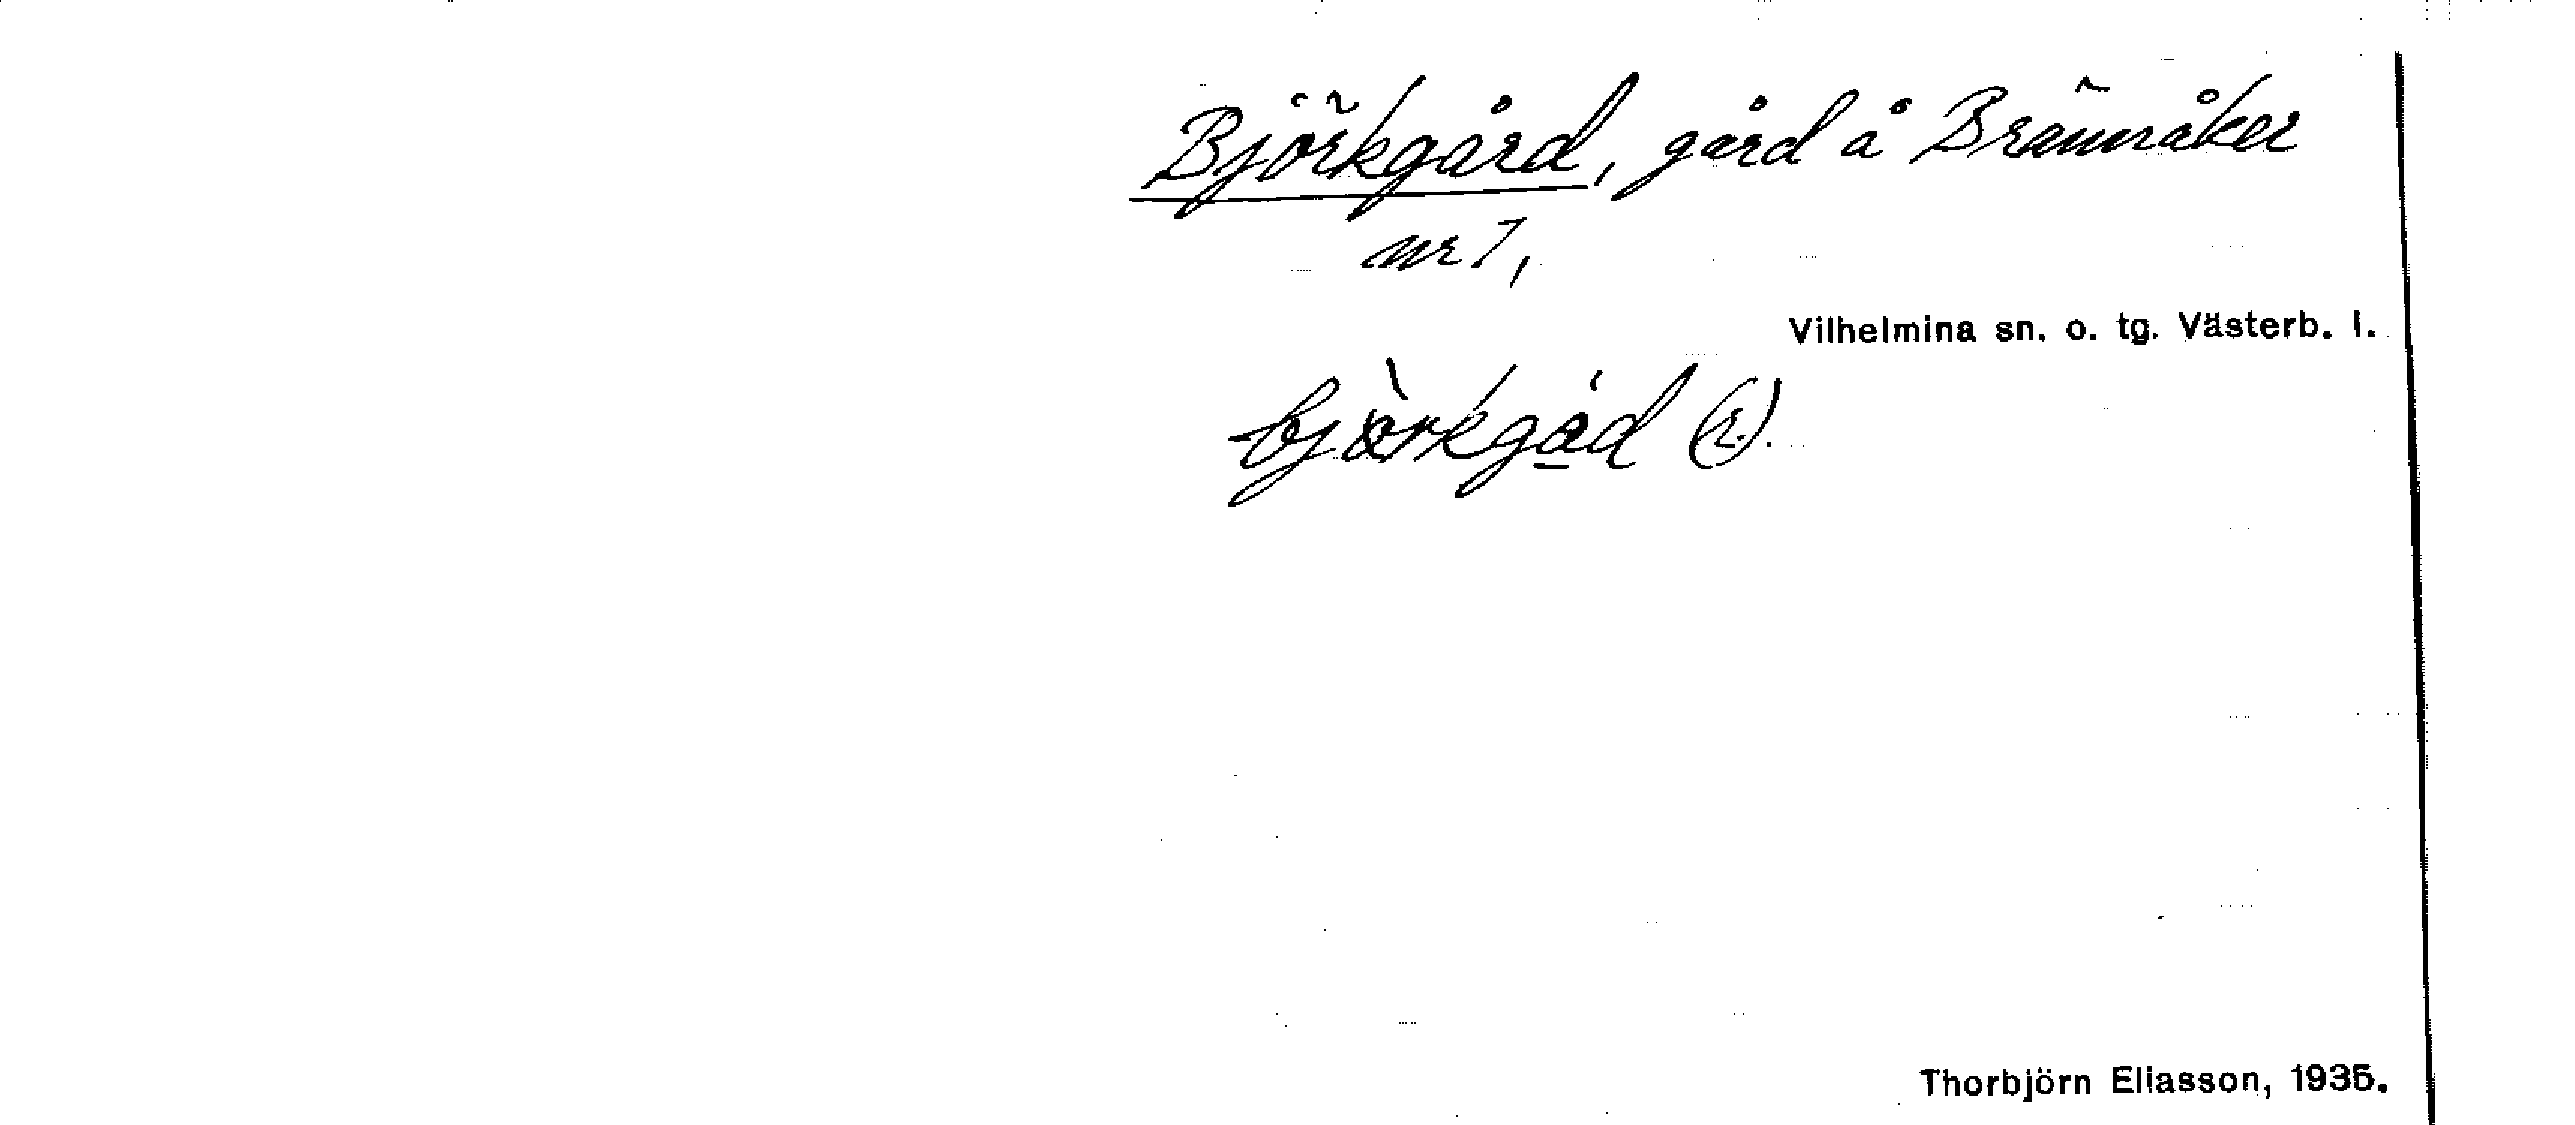 Björkgård, gård å Brännåker
nr 1,
Vilhelmina sn. o. tg. Västerb. l.
björkgåd (r.).
Thorbjörn Eliasson, 1935.